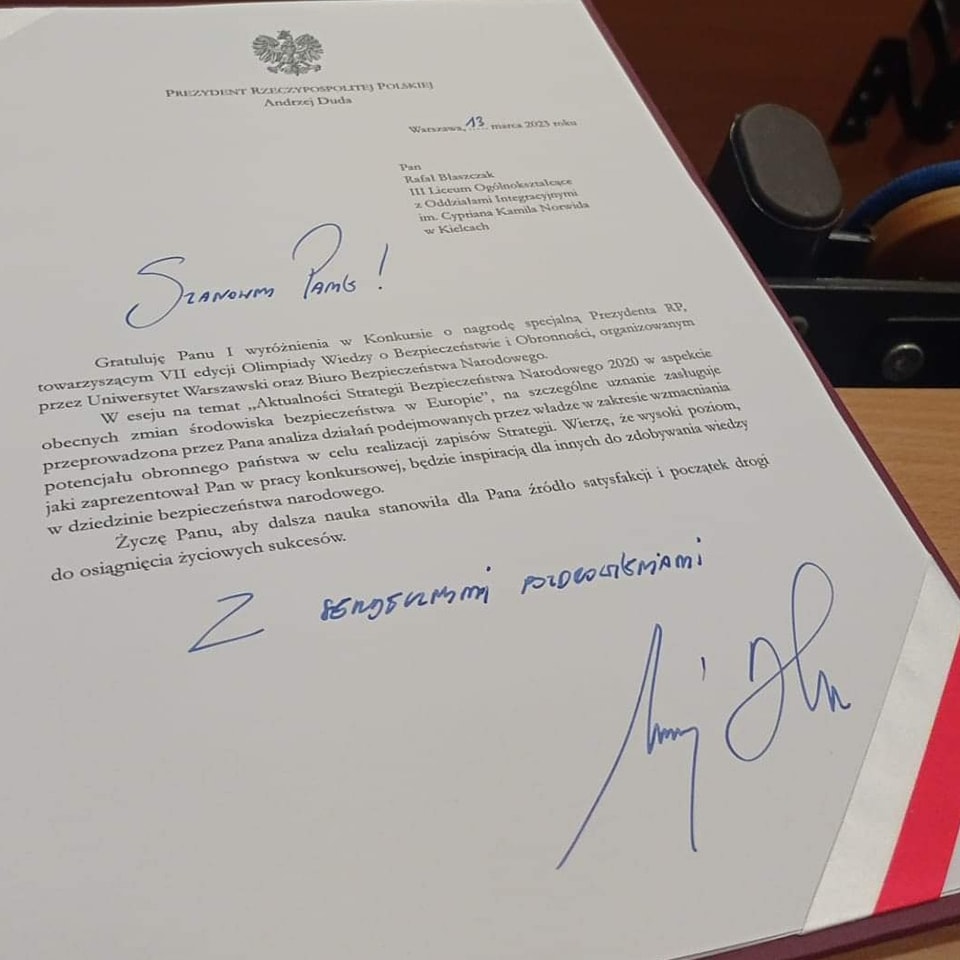 PREZYDENT RZECZYPOSPOLITEJ POLSKIEJ
Andrzej Duda
Warszawa, 13 marca 2023 roku
Pan
Rafał Błaszczak
III Liceum Ogólnokształcące
z Oddziałami Integracyjnymi
im. Cypriana Kamila Norwida
w Kielcach
Szanowny Panie!
Gratuluję Panu I wyróżnienia w Konkursie o nagrodę specjalną Prezydenta RP,
towarzyszącym VII edycji Olimpiady Wiedzy o Bezpieczeństwie i Obronności, organizowanym
przez Uniwersytet Warszawski oraz Biuro Bezpieczeństwa Narodowego.
W eseju na temat „Aktualności Strategii Bezpieczeństwa Narodowego 2020 w aspekcie
obecnych zmian środowiska bezpieczeństwa w Europie”, na szczególne uznanie zasługuje
przeprowadzona przez Pana analiza działań podejmowanych przez władze w zakresie wzmacniania
potencjału obronnego państwa w celu realizacji zapisów Strategii. Wierzę, że wysoki poziom,
jaki zaprezentował Pan w pracy konkursowej, będzie inspiracją dla innych do zdobywania wiedzy
w dziedzinie bezpieczeństwa narodowego.
Życzę Panu, aby dalsza nauka stanowiła dla Pana źródło satysfakcji i początek drogi
do osiągnięcia życiowych sukcesów.
Z serdecznymi pozdrowieniami